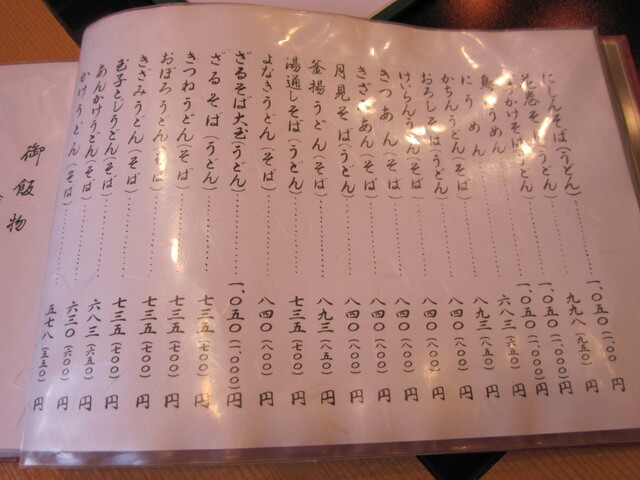 にしんそば(うどん)………一、〇五〇(一、〇〇 円
そ (うどん)………九九八(九五〇)円
かけそば うどん)………一、〇五〇(一、〇〇〇)円
うめん………一、〇五〇(一、〇〇〇)円
にうめん………六八三(六五〇)円
かちんうどん(そば)………八九三(八五〇)円
おろしそば(うどん)………八四〇(八〇〇)円
けいらんうどん(そば)………八四〇(八〇〇)円
きつあん(そば)………八四〇(八〇〇)円
きざみあん(そば)………八四〇(八〇〇)円
月見そば(うどん)………八四〇(八〇〇)円
釜揚うどん(そば)………八九三(八五〇)円
湯通しそば(うどん)………七三五(七〇〇)円
よなきうどん(そば)………八四〇(八〇〇)円
ざるそば大(うどん)………一、〇五〇(一、〇〇〇)円
ざるそば(うどん)………七三五(七〇〇)円
きつねうどん(そば)………七三五(七〇〇)円
おぼろうどん(そば)………七三五(七〇〇)円
きざみうどん(そば)………七三五(七〇〇)円
玉子とじうどん(そば)………六八三(六五〇)円
あんかけうどん(そば)………六三〇(六〇〇)円
かけうどん(そば)………五七八(五五〇)円
御飯物